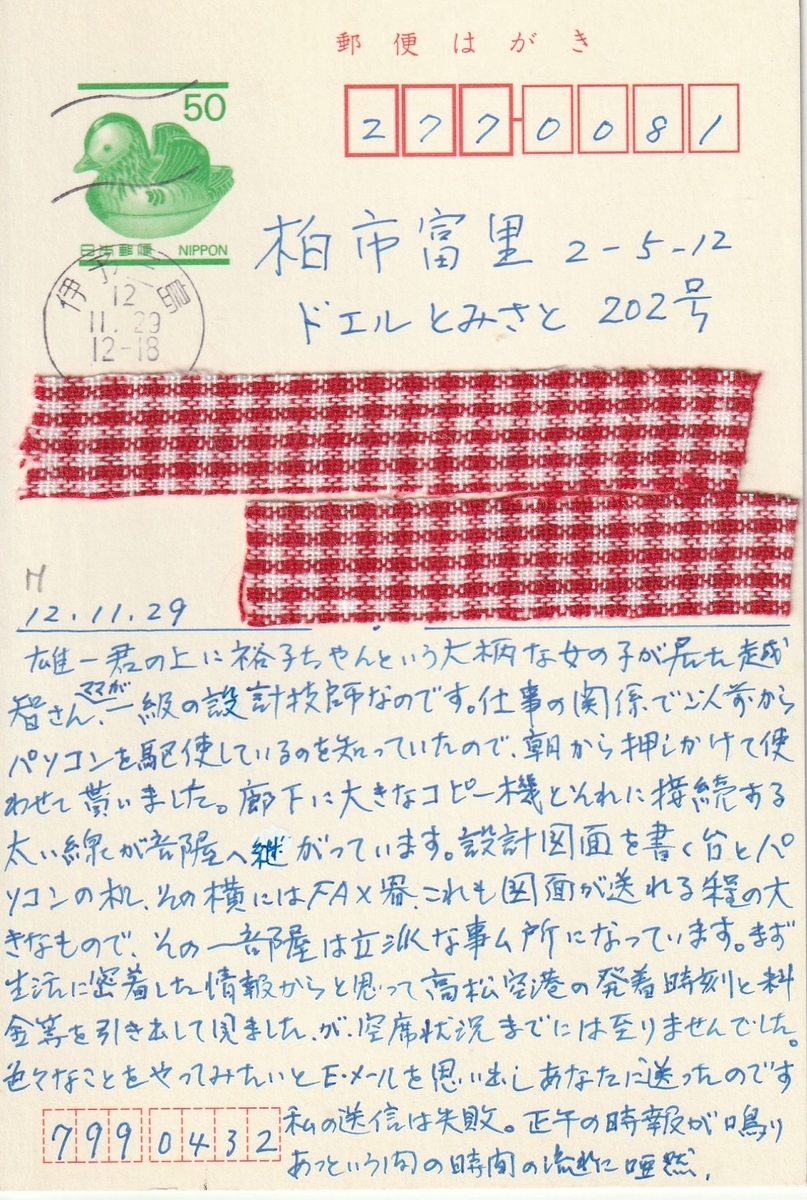 郵便はがき
50
日本郵便 NIPPON
277-0081
伊予三島
12
11.29
12-18
柏市富里 2-5-12
ドエルとみさと 202号
M
12.11.29
雄一君の上に裕子ちゃんという大柄な女の子が居た越
智さん、ママが一級の設計技師なのです。仕事の関係で以前から
パソコンを駆使しているのを知っていたので、朝から押しかけて使
わせて貰いました。廊下に大きなコピー機とそれに接続する
太い線が部屋へ継がっています。設計図面を書く台とパ
ソコンの机、その横にはFAX器、これも図面が送れる程の大
きなもので、その一部屋は立派な事ム所になっています。まず
生活に密着した情報からと思って高松空港の発着時刻と料
金等を引き出して見ましたが、空席状況までには至りませんでした。
色々なことをやってみたいとE・メールを思い出しあなたに送ったのです
私の送信は失敗。正午の時報が鳴り
あっという間の時間の流れに唖然、
7990432